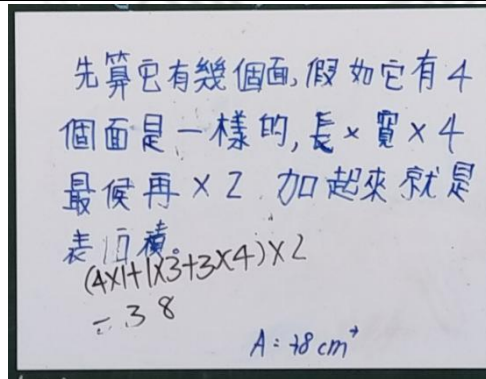 先算它有幾個面,假如它有4
個面是一樣的,長×寬×4
最候再×2 加起來就是
表面積。
(4×1+1×3+3×4)×2
=38
A:38cm²